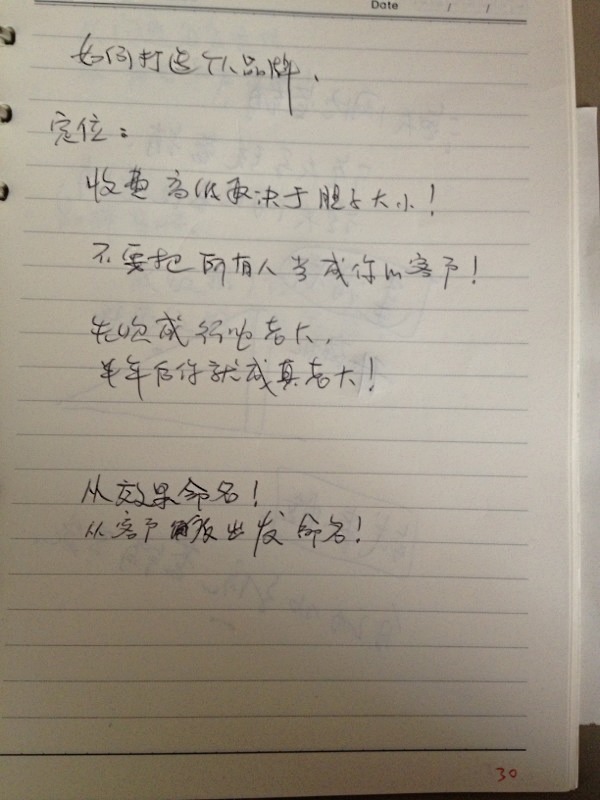 Date / /
如何打造个人品牌、
定位：
收费高低取决于胆子大小！
不要把所有人当成你的客户！
先吹成行业老大，
半年后你就成真老大！
从效果命名！
从客户出发命名！
30